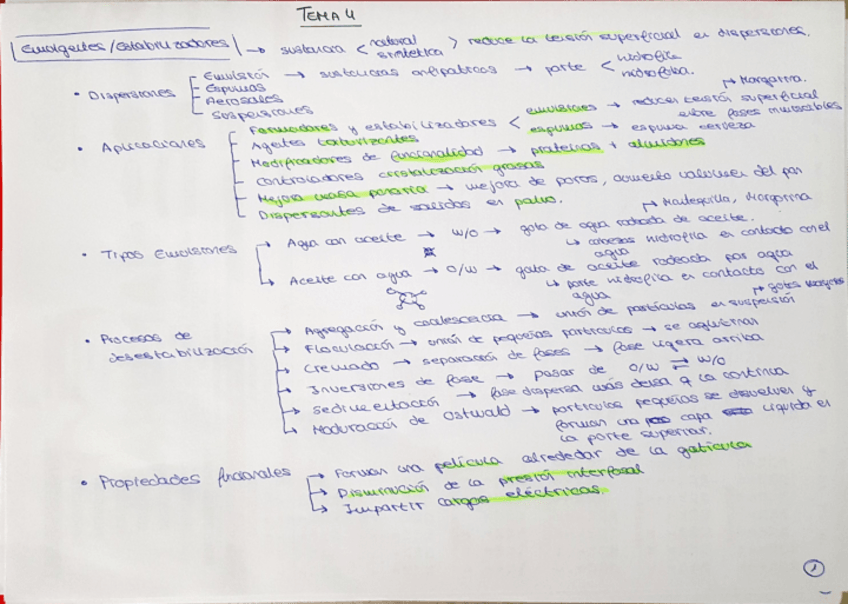 TEMA 4
Emulgentes/Estabilizadores → sustancia < natural sintética > reduce la tensión superficial en dispersiones.
• Dispersiones
Emulsión → sustancias anfipáticas → parte < hidrófila hidrófoba.
Espumas
Aerosoles
Suspensiones
• Aplicaciones
Formadores y estabilizadores < emulsiones → reducen tensión superficial entre fases inmiscibles → Margarina.
espumas → espuma cerveza
Agentes texturizantes
Modificadores de funcionalidad → proteínas + almidones
Controladores cristalización grasas
Mejora masa panaria → mejora de poros, aumento volumen del pan
Dispersantes de sólidos en polvo.
• Tipos Emulsiones
Agua con aceite → W/O → gota de agua rodeada de aceite. → Mantequilla, Margarina
↳ cabezas hidrófila en contacto con el agua
Aceite con agua → O/W → gota de aceite rodeada por agua
↳ parte hidrófila en contacto con el agua
• Procesos de desestabilización
Agregación y coalescencia → unión de partículas en suspensión → gotas
Floculación → unión de pequeñas partículas → se aglutinan
Cremado → separación de fases → fase ligera arriba
Inversiones de fase → pasar de O/W ⇄ W/O
Sedimentación → fase dispersa más densa q la continua
Maduración de Ostwald → partículas pequeñas se disuelven y
forman una capa líquida en
la parte superior.
• Propiedades funcionales
Forman una película alrededor de la gotícula
Disminución de la presión interfasal
Impartir cargas eléctricas.
1